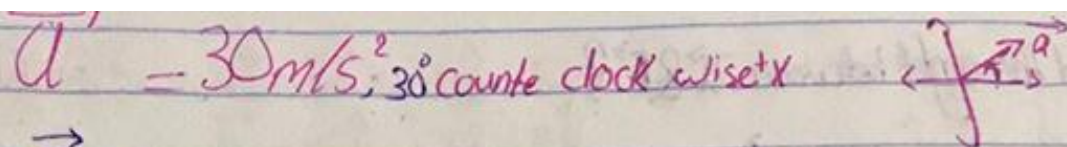 a⃗ = 30m/s², 30° counte clock wise +x a⃗